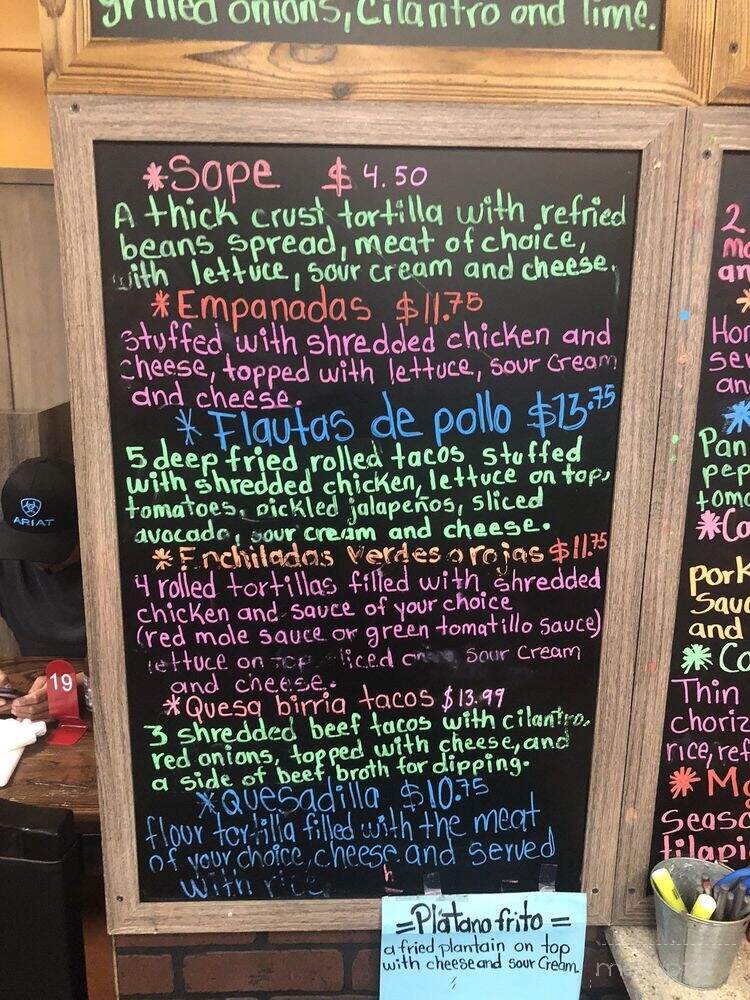 grilled onions, cilantro and lime.
*Sope $4.50
A thick crust tortilla with refried
beans spread, meat of choice,
with lettuce, sour cream and cheese.
*Empanadas $11.75
stuffed with shredded chicken and
cheese, topped with lettuce, sour cream
and cheese.
*Flautas de pollo $13.75
5 deep fried rolled tacos stuffed
with shredded chicken, lettuce on top,
tomatoes, pickled jalapeños, sliced
avocado, sour cream and cheese.
*Enchiladas Verdes o rojas $11.75
4 rolled tortillas filled with shredded
chicken and sauce of your choice
(red mole sauce or green tomatillo sauce)
lettuce on top sliced sour cream
and cheese.
*Quesa birria tacos $13.99
3 shredded beef tacos with cilantro,
red onions, topped with cheese, and
a side of beef broth for dipping.
*Quesadilla $10.75
flour tortilla filled with the meat
of your choice, cheese and served
with rice
=Platano frito=
a fried plantain on top
with cheese and sour cream.
ARIAT
19
2
an
Hor
ser
an
Pan
pep
toma
*Ca
pork
Sauc
and
*Ca
Thin
choriz
rice, ref
*Mo
Seaso
tilapi